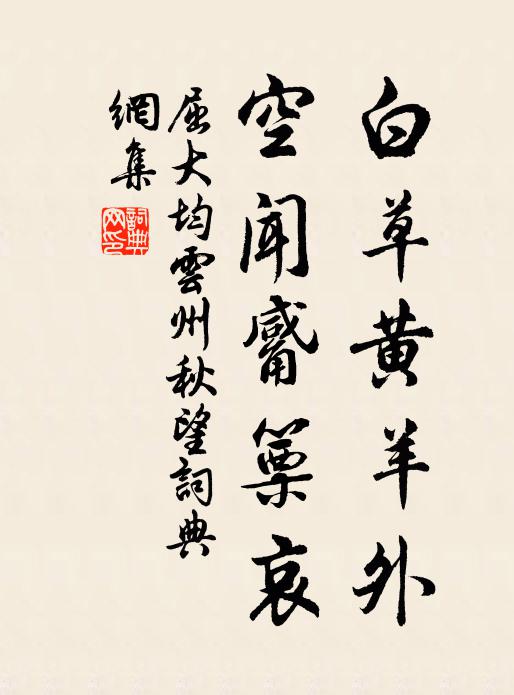 白草黄羊外
空聞觱篥哀
屈大均雲州秋望詞典
網集
詞典
网印